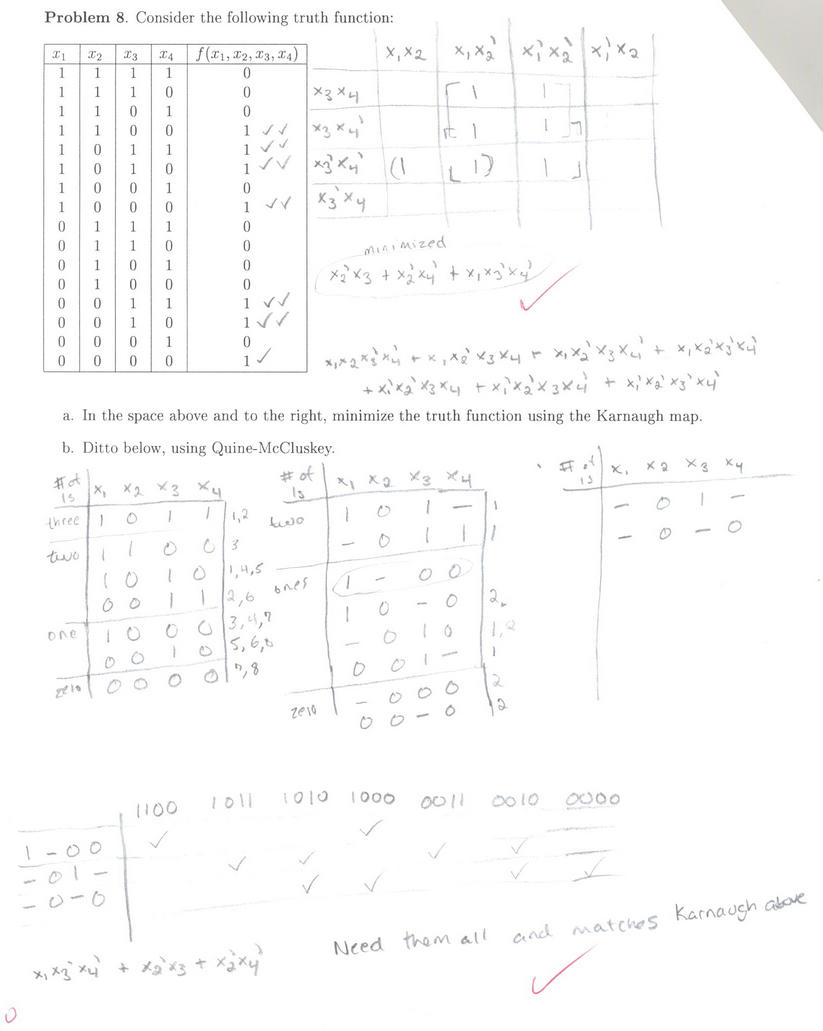 Problem 8. Consider the following truth function:
x₁ x₂ x₃ x₄ f(x₁, x₂, x₃, x₄)
1 1 1 1 0
1 1 1 0 0
1 1 0 1 0
1 1 0 0 1 ✓✓
1 0 1 1 1 ✓✓
1 0 1 0 1 ✓✓
1 0 0 1 0
1 0 0 0 1 ✓✓
0 1 1 1 0
0 1 1 0 0
0 1 0 1 0
0 1 0 0 0
0 0 1 1 1 ✓✓
0 0 1 0 1 ✓✓
0 0 0 1 0
0 0 0 0 1 ✓
x₁x₂ x₁x₂' x₁'x₂' x₁'x₂
x₃x₄ 1 1
x₃x₄' 1 1
x₃'x₄' (1 1) 1
x₃'x₄
minimized
x₂'x₃ + x₂'x₄' + x₁x₃'x₄'
x₁x₂x₃'x₄' + x₁x₂'x₃x₄ + x₁x₂'x₃x₄' + x₁x₂'x₃'x₄'
+ x₁'x₂'x₃x₄ + x₁'x₂'x₃x₄' + x₁'x₂'x₃'x₄'
a. In the space above and to the right, minimize the truth function using the Karnaugh map.
b. Ditto below, using Quine-McCluskey.
# of 1s x₁ x₂ x₃ x₄
three 1 0 1 1 1,2
two 1 1 0 0 3
1 0 1 0 1,4,5
0 0 1 1 2,6
one 1 0 0 0 3,4,7
0 0 1 0 5,6,8
zero 0 0 0 0 7,8
# of 1s x₁ x₂ x₃ x₄
two 1 0 1 – 1
– 0 1 1 1
ones 1 – 0 0
1 0 – 0 2
– 0 1 0 1,2
0 0 1 – 1
zero – 0 0 0 2
0 0 – 0 2
# of 1s x₁ x₂ x₃ x₄
– 0 1 –
– 0 – 0
1100 1011 1010 1000 0011 0010 0000
1 – 0 0 ✓ ✓
– 0 1 – ✓ ✓ ✓ ✓
– 0 – 0 ✓ ✓ ✓ ✓
Need them all and matches Karnaugh above
x₁x₃'x₄' + x₂'x₃ + x₂'x₄'
0